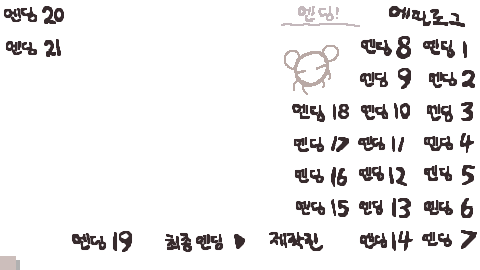 엔딩 20 엔딩! 에필로그
엔딩 21 엔딩 8 엔딩 1
엔딩 9 엔딩 2
엔딩 18 엔딩 10 엔딩 3
엔딩 17 엔딩 11 엔딩 4
엔딩 16 엔딩 12 엔딩 5
엔딩 15 엔딩 13 엔딩 6
엔딩 19 최종 엔딩 제작진 엔딩 14 엔딩 7